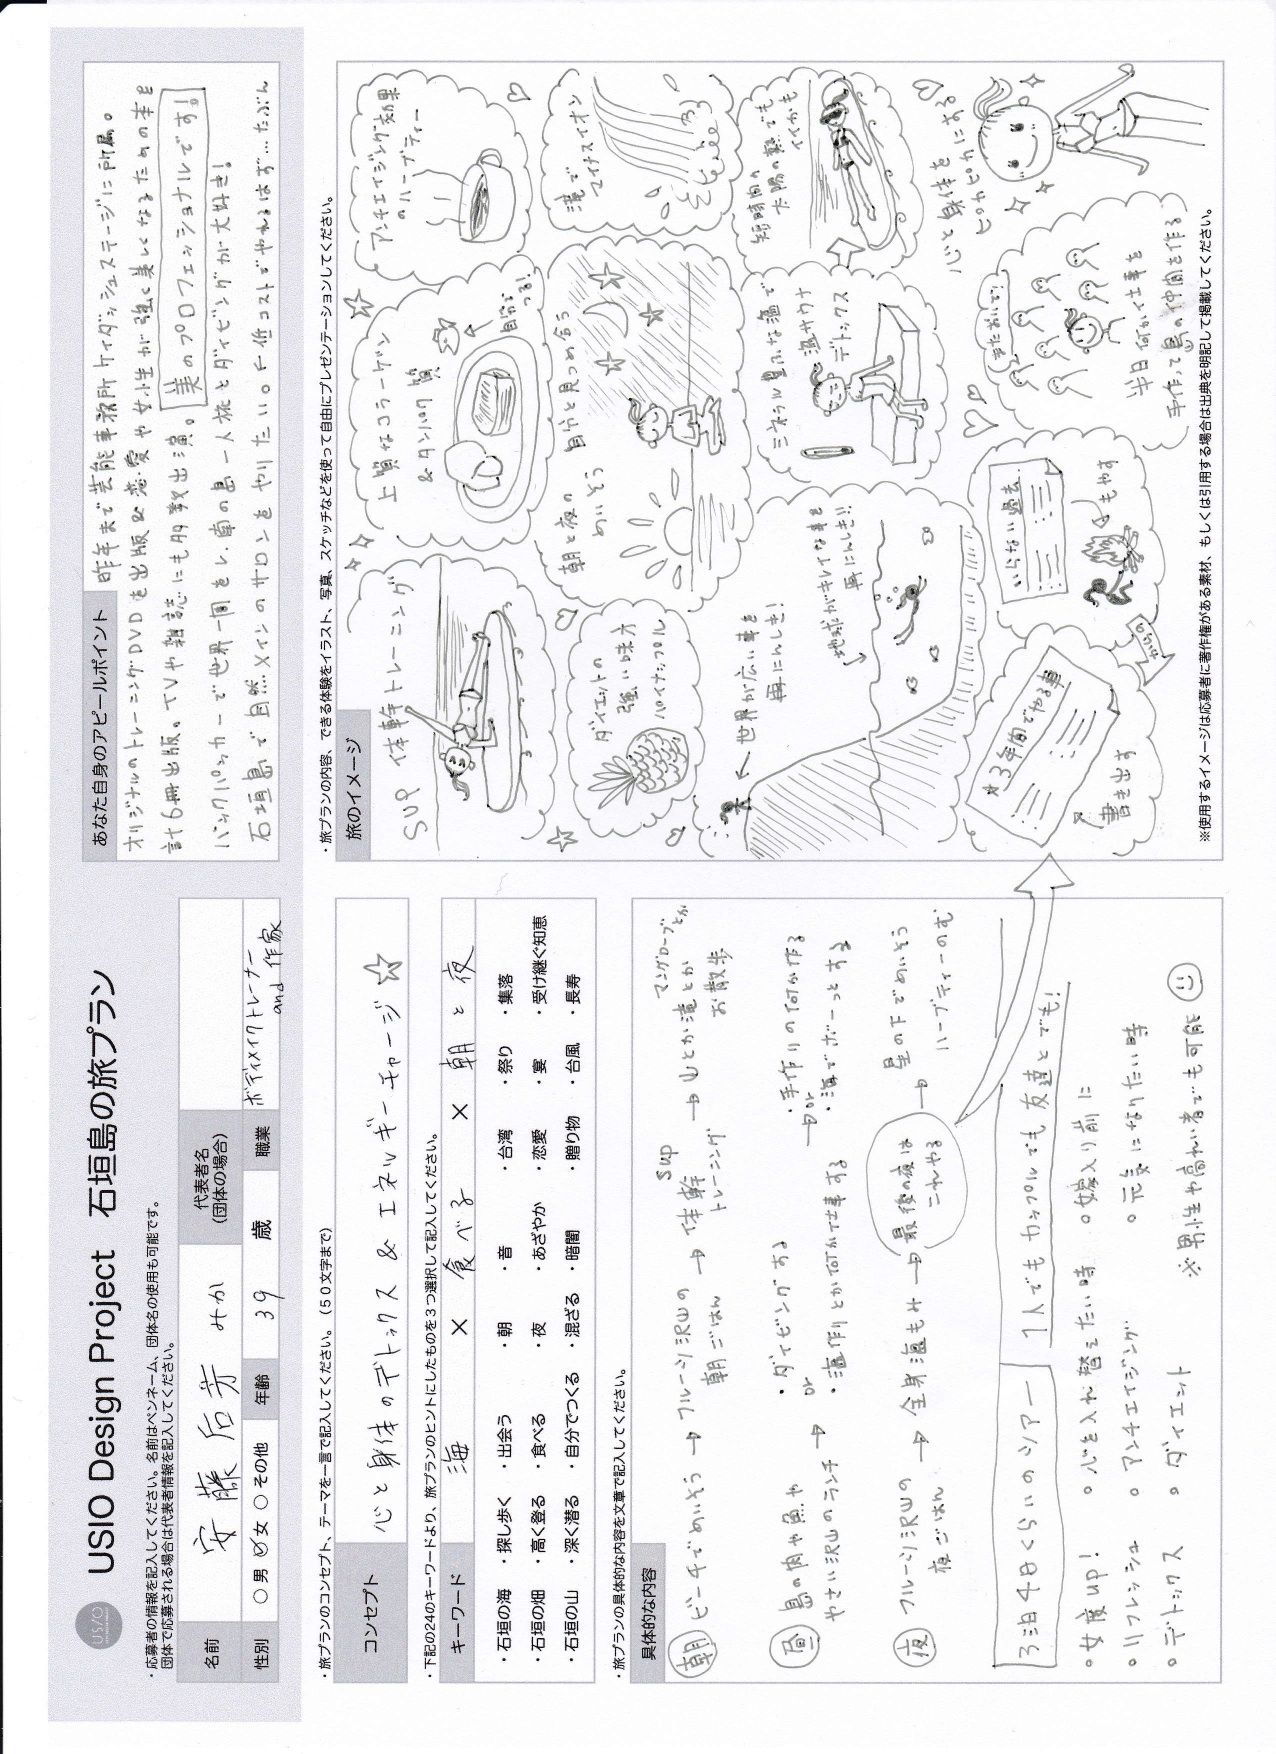 USIO Design Project 石垣島の旅プラン
・応募者の情報を記入してください。名前はペンネーム、団体名の使用も可能です。
団体で応募される場合は代表者情報を記入してください。
名前
安藤 后芳 みか
代表者名
(団体の場合)
性別
○男 ○女 ○その他
年齢
39 歳
職業
ボディメイクトレーナー
and 作家
・旅プランのコンセプト、テーマを一言で記入してください。(50文字まで)
コンセプト
心と身体のデトックス & エネルギーチャージ☆
・下記の24のキーワードより、旅プランのヒントにしたものを3つ選択して記入してください。
キーワード
海 × 食べる × 朝と夜
・石垣の海 ・探し歩く ・出会う ・朝 ・音 ・台湾 ・祭り ・集落
・石垣の畑 ・高く登る ・食べる ・夜 ・あざやか ・恋愛 ・宴 ・受け継ぐ知恵
・石垣の山 ・深く潜る ・自分でつくる ・混ざる ・暗闇 ・贈り物 ・台風 ・長寿
・旅プランの具体的な内容を文章で記入してください。
具体的な内容
朝 ビーチでめいそう → フルーツ沢山の
朝ごはん
→ SUP
体幹
トレーニング
→ 山とか滝とか
マングローブとか
お散歩
昼 島の肉や魚や
やさい沢山のランチ →
・ダイビングする
or
・塩作りとか何か仕事する
→ or
・手作りの何か作る
・海でボーっとする
夜 フルーツ沢山の
夜ごはん
→ 全身塩もみ → 最後の夜は
これやる
→ 星の下でめいそう
ハーブティーのむ
3泊4日くらいのツアー 1人でもカップルでも友達とでも!
・女度up! ・心を入れ替えたい時 ・嫁入り前に
・リフレッシュ ・アンチエイジング ・元気になりたい時
・デトックス ・ダイエット ※男性や高れい者でも可能
あなた自身のアピールポイント
昨年まで芸能事務所ケイダッシュステージに所属。
オリジナルのトレーニングDVDを出版&恋愛や女性が強く美しくなるための本を
計6冊出版。TVや雑誌にも多数出演。美のプロフェッショナルです!
バックパッカーで世界一周をし、南の島一人旅とダイビングが大好き!
石垣島で自然メインのサロンをやりたい。←低コストでやれるはず…たぶん
・旅プランの内容、できる体験をイラスト、写真、スケッチなどを使って自由にプレゼンテーションしてください。
旅のイメージ
SUP 体幹トレーニング
上質なコラーゲン
&タンパク質
自分でつる!
アンチエイジング効果
のハーブティー
ダイエットの
強い味方
パイナップル
朝と夜の
めいそう
自分と見つめ合う
滝で
マイナスイオン
世界が広い事を
再にんしき!
地球がキレイな事を
再にんしき!!
ミネラル豊ふな塩で
塩サウナ
デトックス
短時間の
太陽の熱でも
イイかも
☆3年間でやる事
書き出す
いらない過去
もやす
またおいで!
半日何か仕事を
手伝って島の仲間を作る
心と身体を
ピカピカにする
※使用するイメージは応募者に著作権がある素材、もしくは引用する場合は出典を明記して掲載してください。